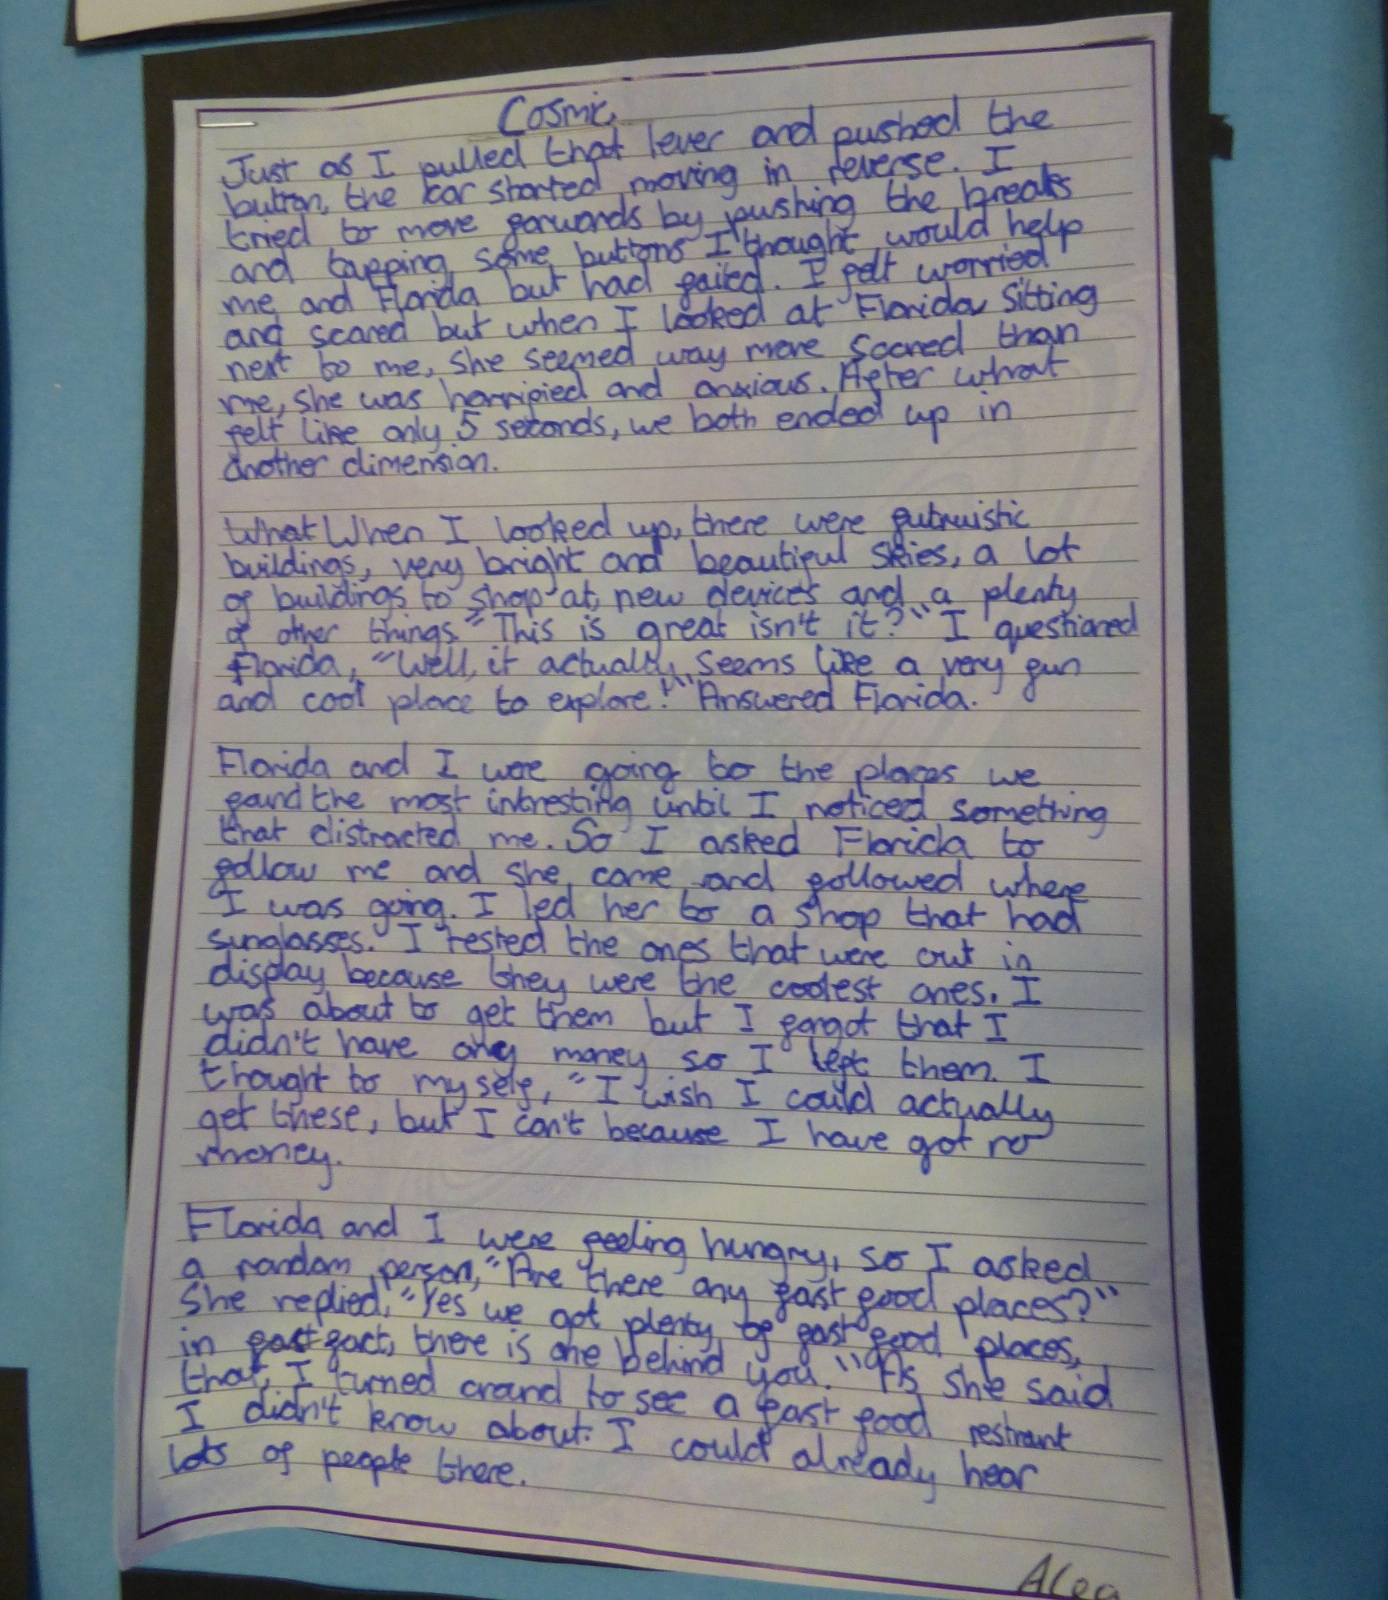 Cosmic
Just as I pulled that lever and pushed the
button, the car started moving in reverse. I
tried to move forwards by pushing the breaks
and tapping some buttons I thought would help
me and Florida but had failed. I felt worried
and scared but when I looked at Florida sitting
next to me, she seemed way more scared than
me, she was horrified and anxious. After what
felt like only 5 seconds, we both ended up in
another dimension.
What When I looked up, there were futruistic
buildings, very bright and beautiful skies, a lot
of buildings to shop at, new devices and a plenty
of other things. "This is great isn't it?" I questioned
Florida, "Well, it actually seems like a very fun
and cool place to explore!" Answered Florida.
Florida and I were going to the places we
found the most intresting until I noticed something
that distracted me. So I asked Florida to
follow me and she came and followed where
I was going. I led her to a shop that had
sunglasses. I tested the ones that were out in
display because they were the coolest ones. I
was about to get them but I forgot that I
didn't have any money so I left them. I
thought to myself, "I wish I could actually
get these, but I can't because I have got no
money.
Florida and I were feeling hungry, so I asked
a random person, "Are there any fast food places?"
She replied, "Yes we got plenty of fast food places,
in fast fact, there is one behind you." As she said
that, I turned around to see a fast food restrant
I didn't know about. I could already hear
lots of people there.